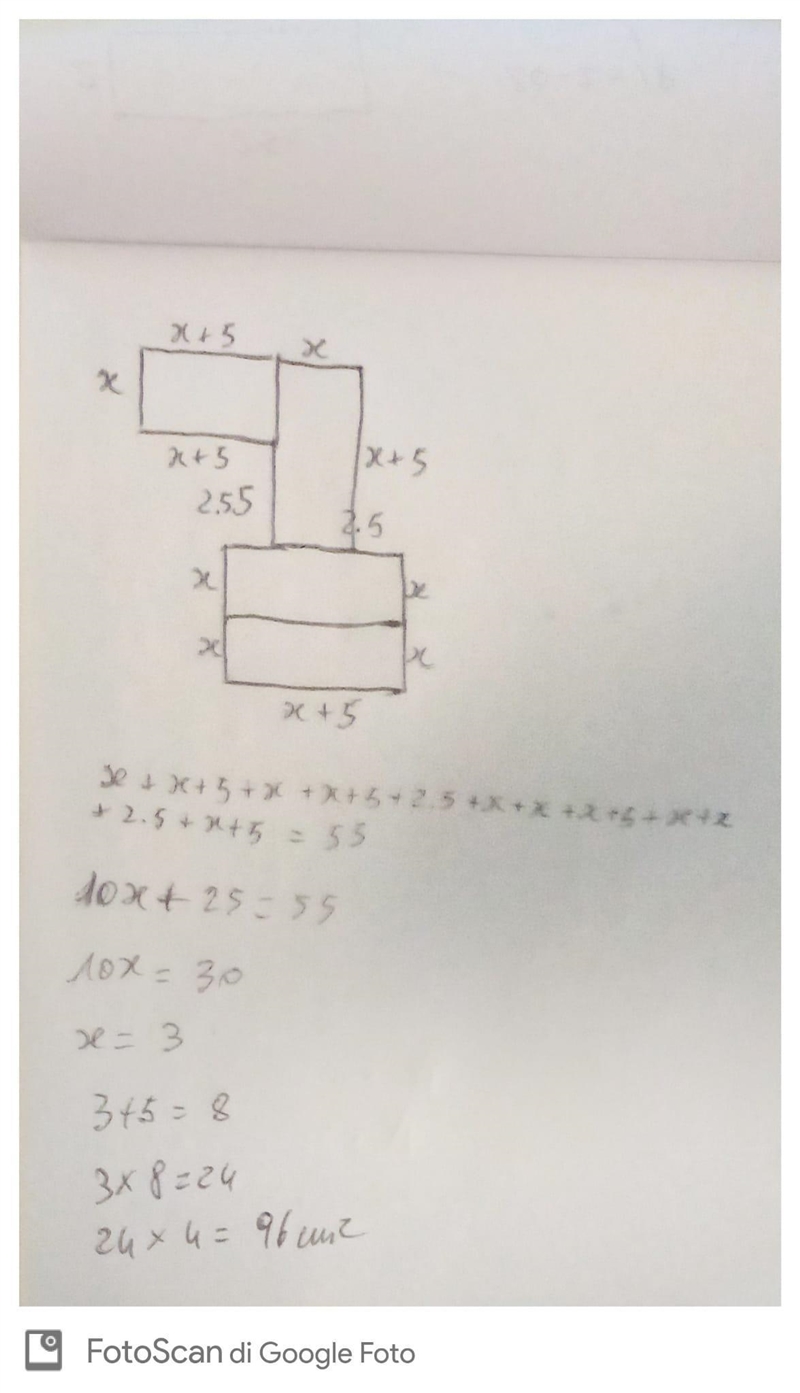 x+5
x
x
x+5
x+5
2.5 5
2.5
x
x
x
x
x+5
x + x+5 + x + x+5 + 2.5 + x + x + x+5 + x + x
+ 2.5 + x+5 = 55
10x + 25 = 55
10x = 30
x = 3
3+5 = 8
3 x 8 = 24
24 x 4 = 96 cm²
FotoScan di Google Foto